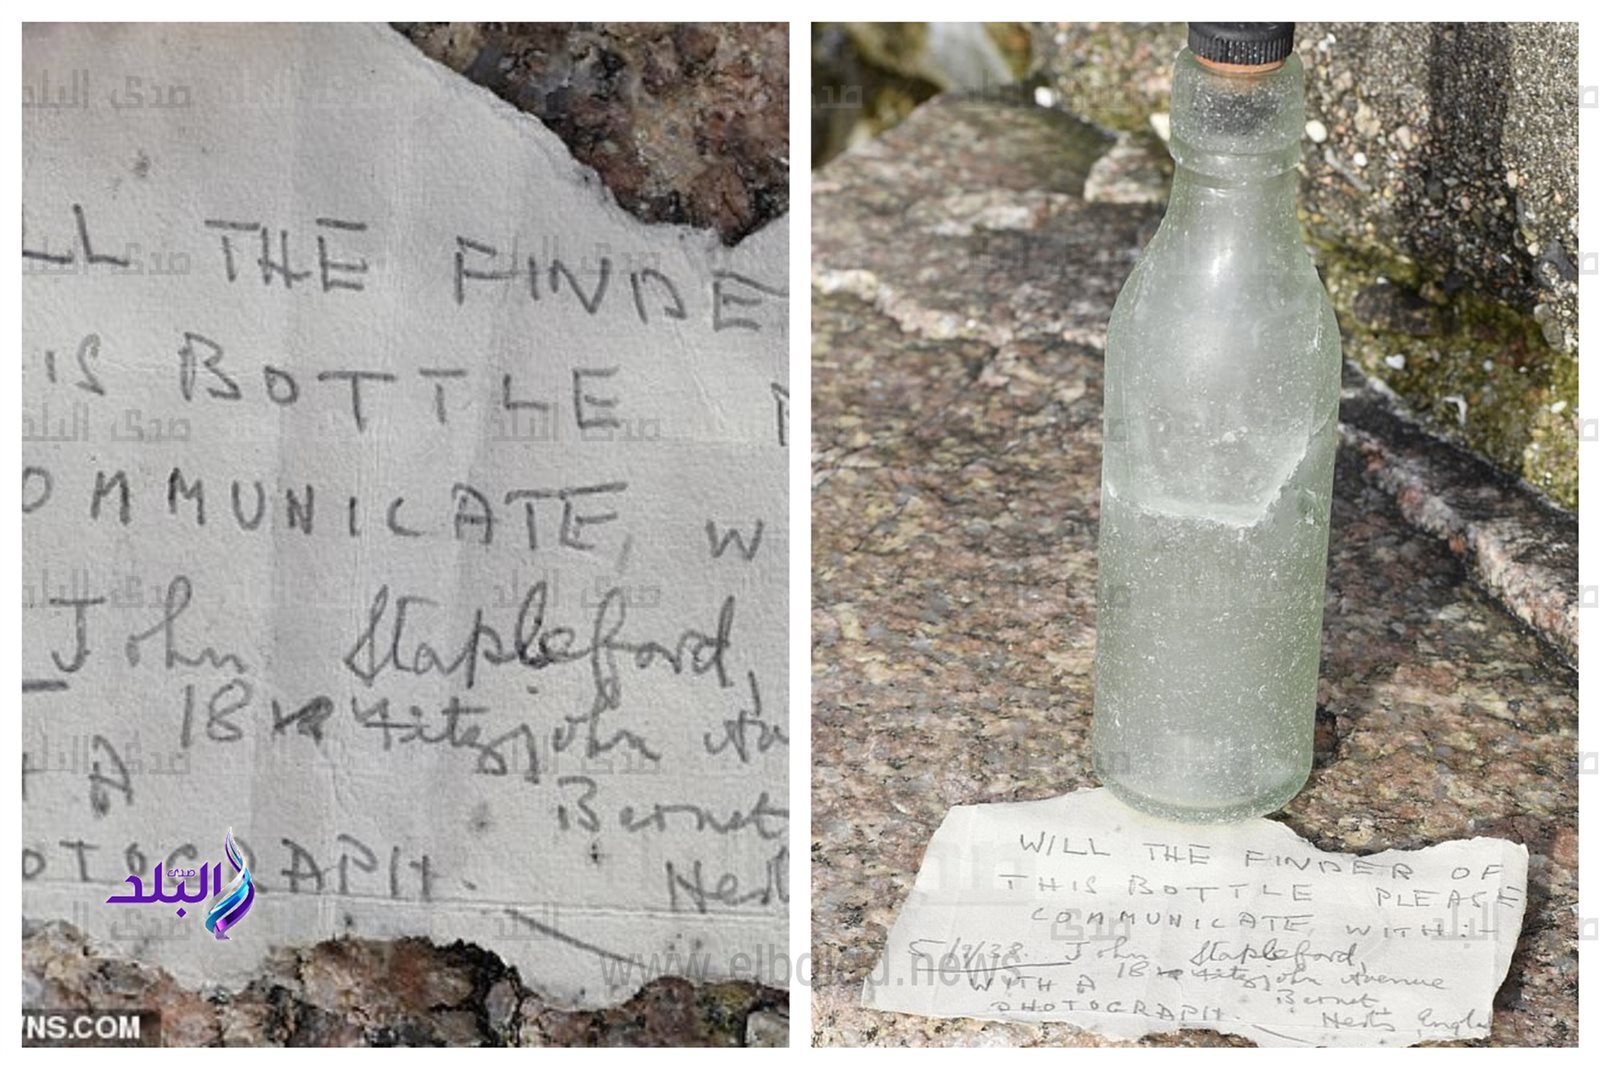 LL THE FINDE
IS BOTTLE
OMMUNICATE, W
John Stapleford,
18 Fitzjohn Av
A
Bernet
OTOGRAPH.
Herts
صدى البلد
NS.COM
WILL THE FINDER OF
THIS BOTTLE PLEASE
COMMUNICATE, WITH:-
5/9/38. John Stapleford,
18 Fitzjohn Avenue
WITH A
Bernet
PHOTOGRAPH.
Herts, Engla
www.elbalad.news